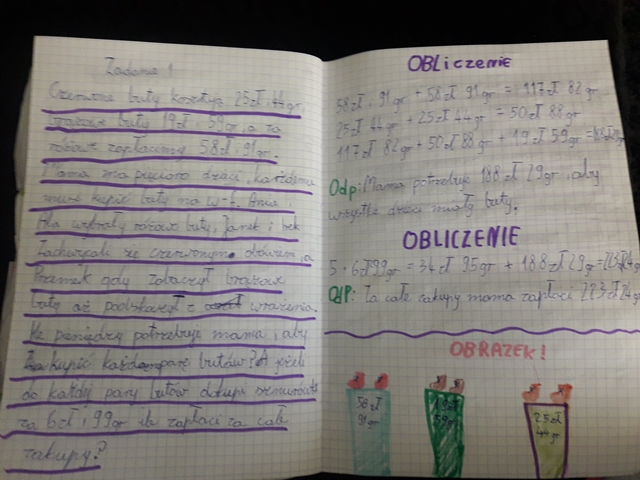 Zadanie 1
Czerwone buty kosztują 25zł i 44gr,
brązowe buty 19zł i 59gr, a za
różowe zapłacimy 58zł i 91gr.
Mama ma pięcioro dzieci, każdemu
musi kupić buty na w-f. Ania i
Ala wybrały różowe buty, Janek i
zachwycali się czerwonym a
gdy zobaczył brązowe
buty aż podskoczył z wrażenia.
Ile pieniędzy potrzebuje mama, aby
kupić każdą parę butów? A jeżeli
do każdej pary butów dokupi
za 6zł i 99gr ile zapłaci za całe
zakupy?
OBLiczeniE
58zł i 91gr + 58zł 91gr = 117zł 82gr
25zł 44gr + 25zł 44gr = 50zł 88gr
117zł 82gr + 50zł 88gr + 19zł 59gr =
Odp: Mama potrzebuje 188zł 29gr, aby
wszystkie dzieci miały buty.
OBLICZENIE
5 · 6zł99gr = 34zł 95gr + 188zł 29gr =
Odp: Za całe zakupy mama zapłaci 223zł 24gr
OBRAZEK!
58zł
91gr
19zł
59gr
25zł
44gr